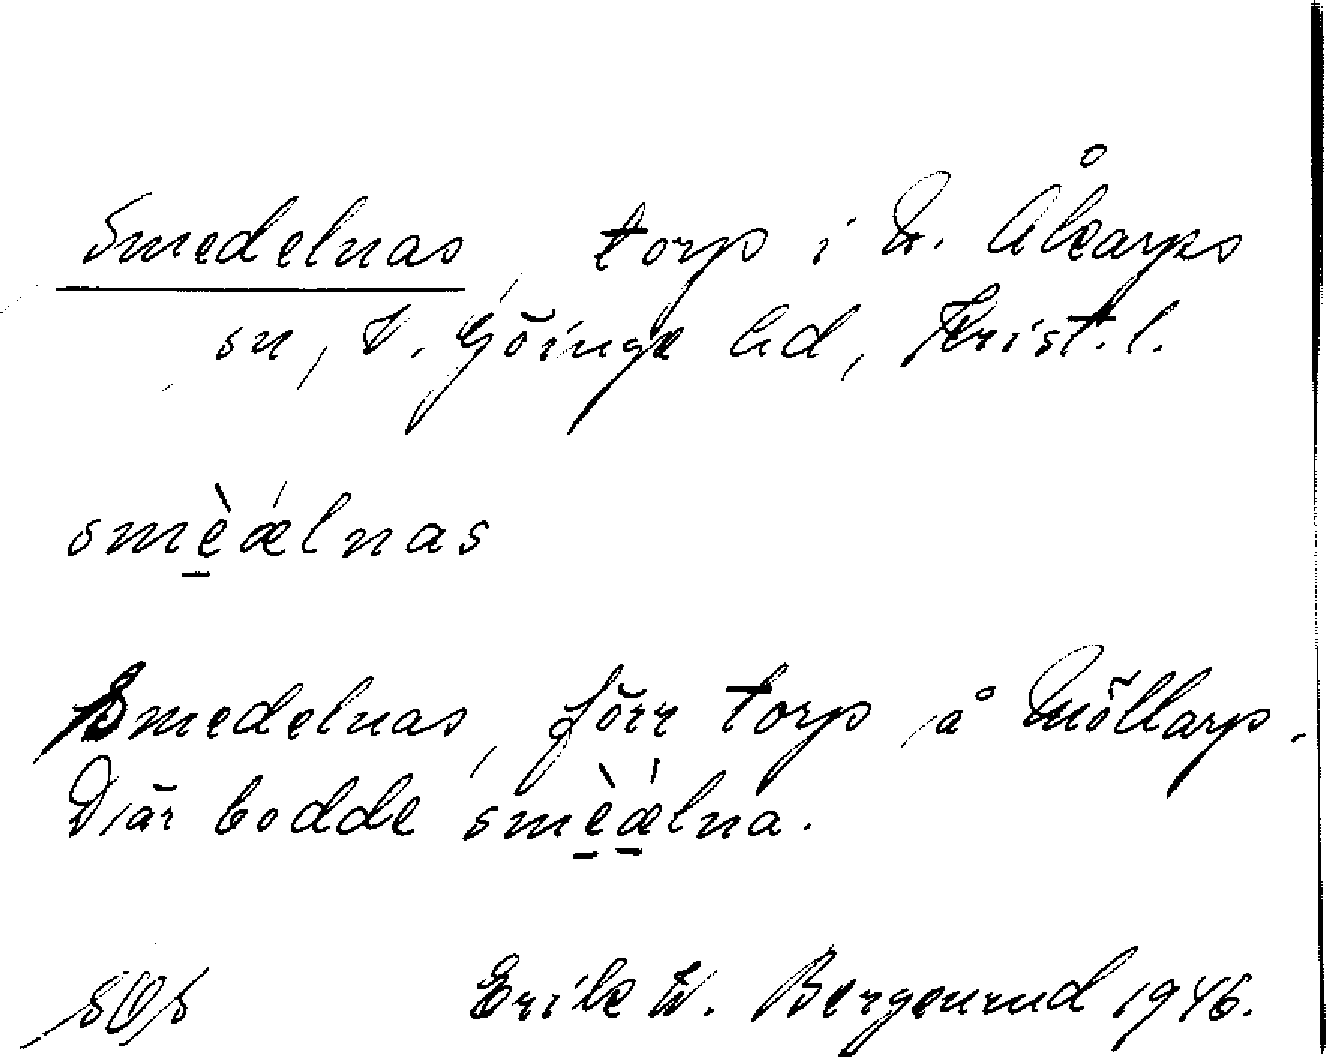 Smedelnas, torp i N. Åkarps
sn, V. Göinge hd, Krist. l.
smèǽlnas
Smedelnas, förr torp å Möllarp.
Där bodde smèǽlna.
SOS Erik W. Bergenrud 1946.